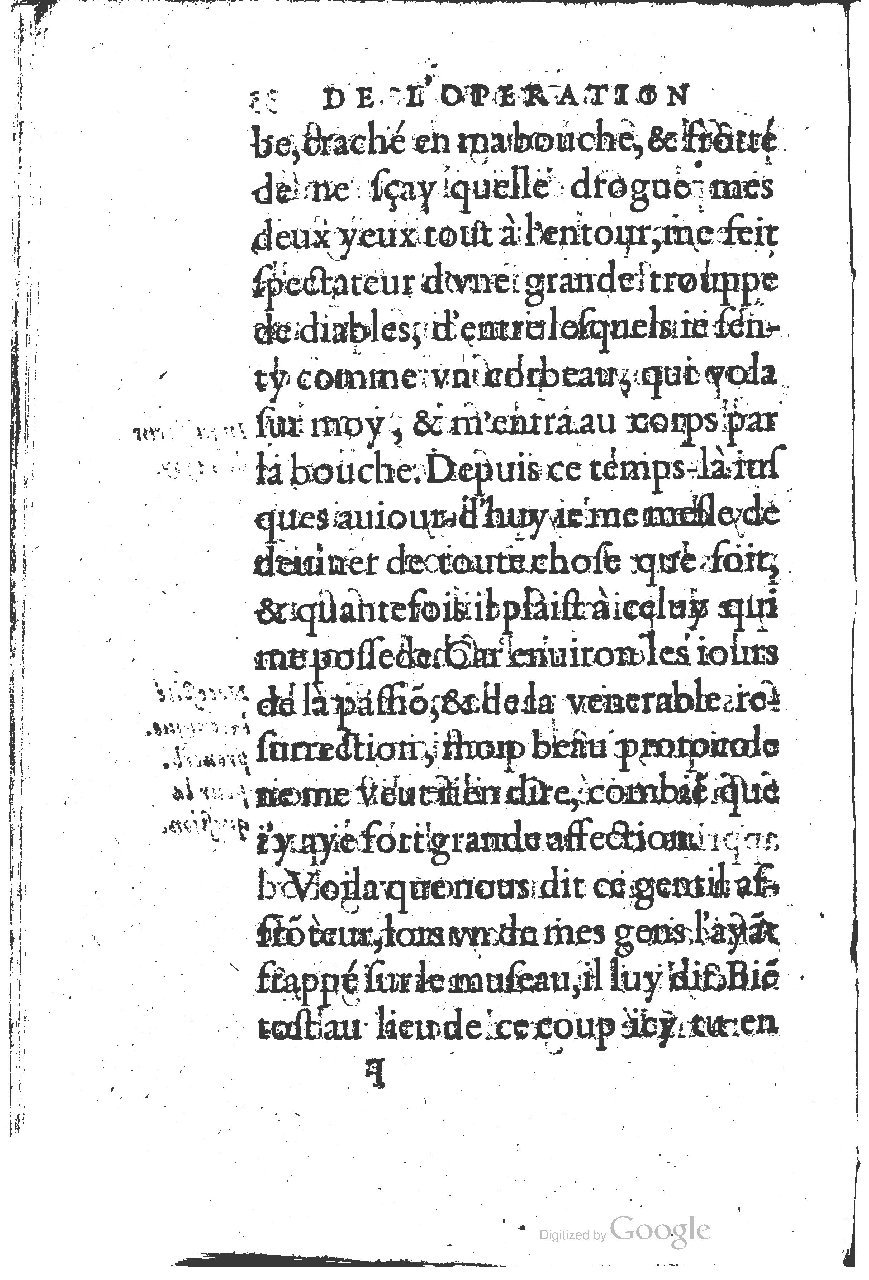 DE L'OPERATION
be, craché en ma bouche, & frotté
de ne sçay quelle drogue mes
deux yeux tout à l'entour, me feit
spectateur d'vne grande trouppe
de diables, d'entre lesquels ie sen-
ty comme vn corbeau, qui vola
sur moy, & m'entra au corps par
la bouche. Depuis ce temps-là ius
ques auiourd'huy ie me mesle de
deuiner de toute chose que soit,
& quantefois il plaist à iceluy qui
me possede. Car enuiron les iours
de la passiō, & de la venerable re-
surrection, mon beau protocole
ne me veut rien dire, combiē que
i'y aye fort grande affection.
Voila que nous dit ce gentil af-
frōteur, lors vn de mes gens l'ayāt
frappé sur le museau, il luy dit. Biē
tost au lieu de ce coup icy tu en
Digitized by Google